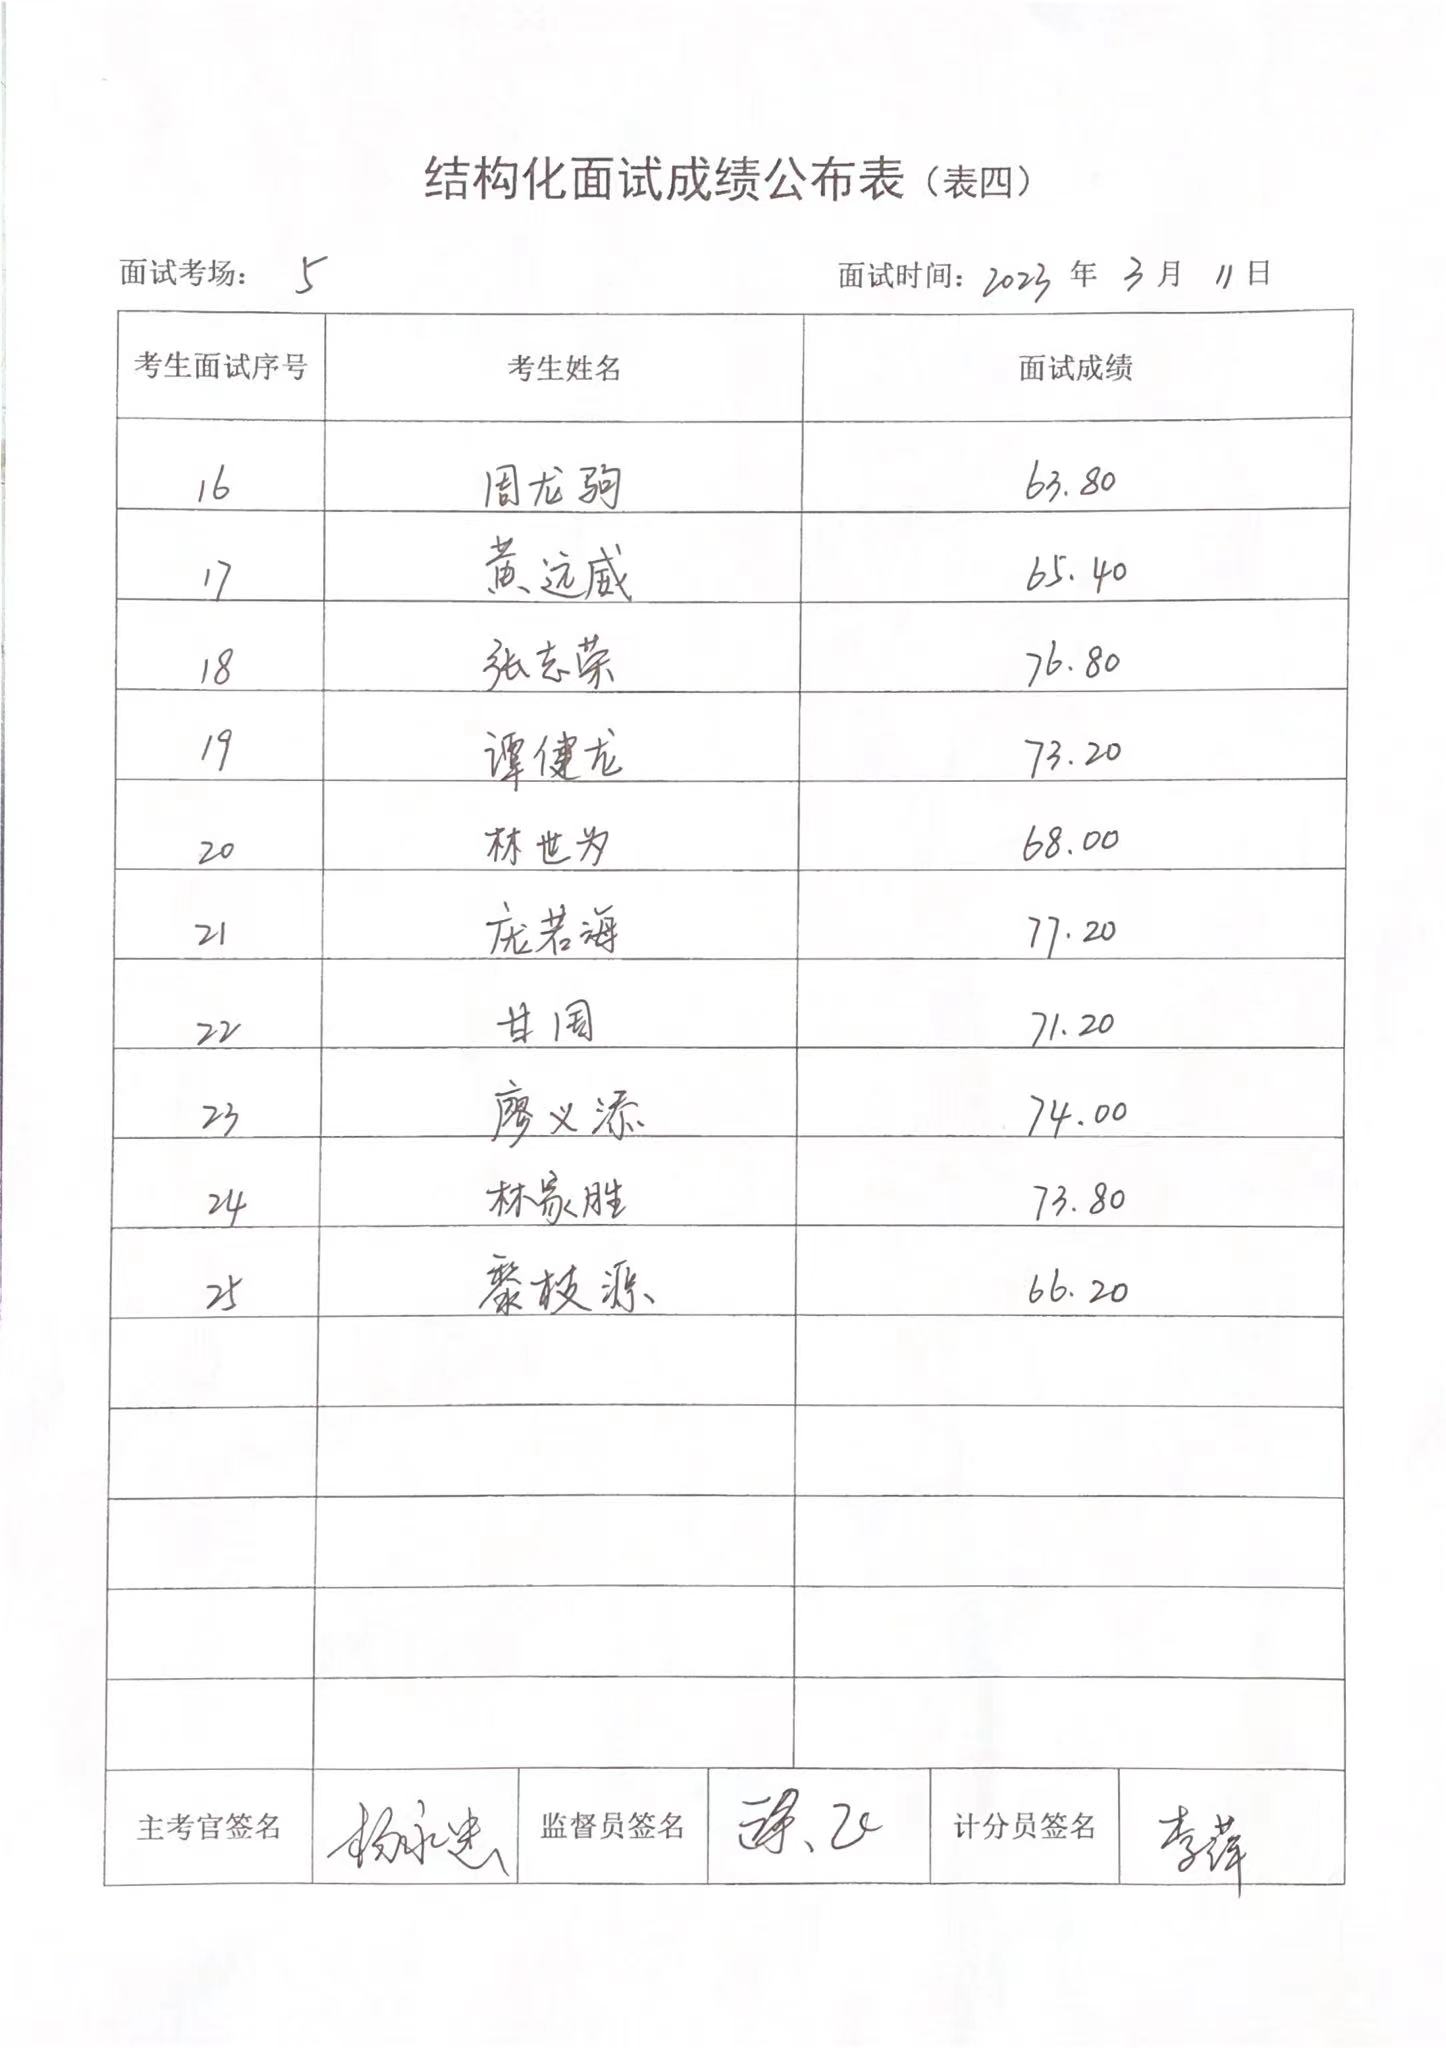 结构化面试成绩公布表（表四）
面试考场： 5 面试时间：2023 年 3 月 11 日
考生面试序号 考生姓名 面试成绩
16 周龙驹 63.80
17 黄远威 65.40
18 张志荣 76.80
19 谭健龙 73.20
20 林世为 68.00
21 庞若海 77.20
22 甘周 71.20
23 廖义添 74.00
24 林家胜 73.80
25 黎枝源 66.20
主考官签名 杨永忠 监督员签名 计分员签名 李萍